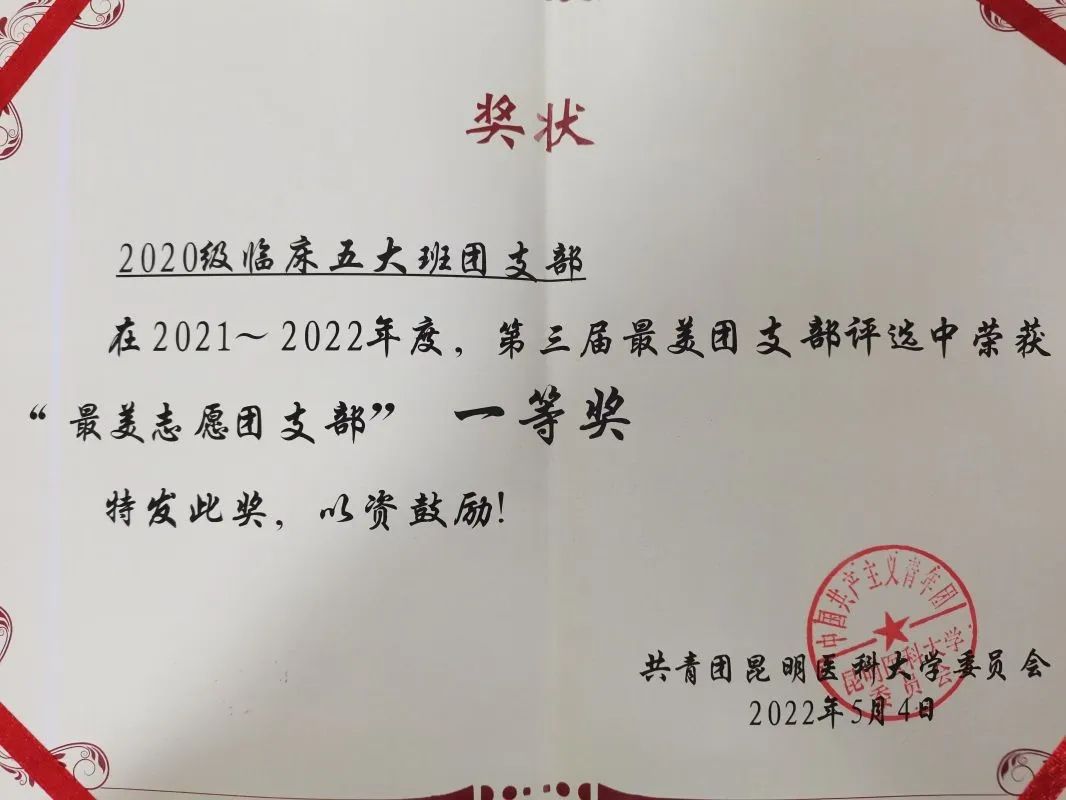 奖状
2020级临床五大班团支部
在2021～2022年度，第三届最美团支部评选中荣获
“最美志愿团支部” 一等奖
特发此奖，以资鼓励！
中国共产主义青年团
昆明医科大学
委员会
共青团昆明医科大学委员会
2022年5月4日